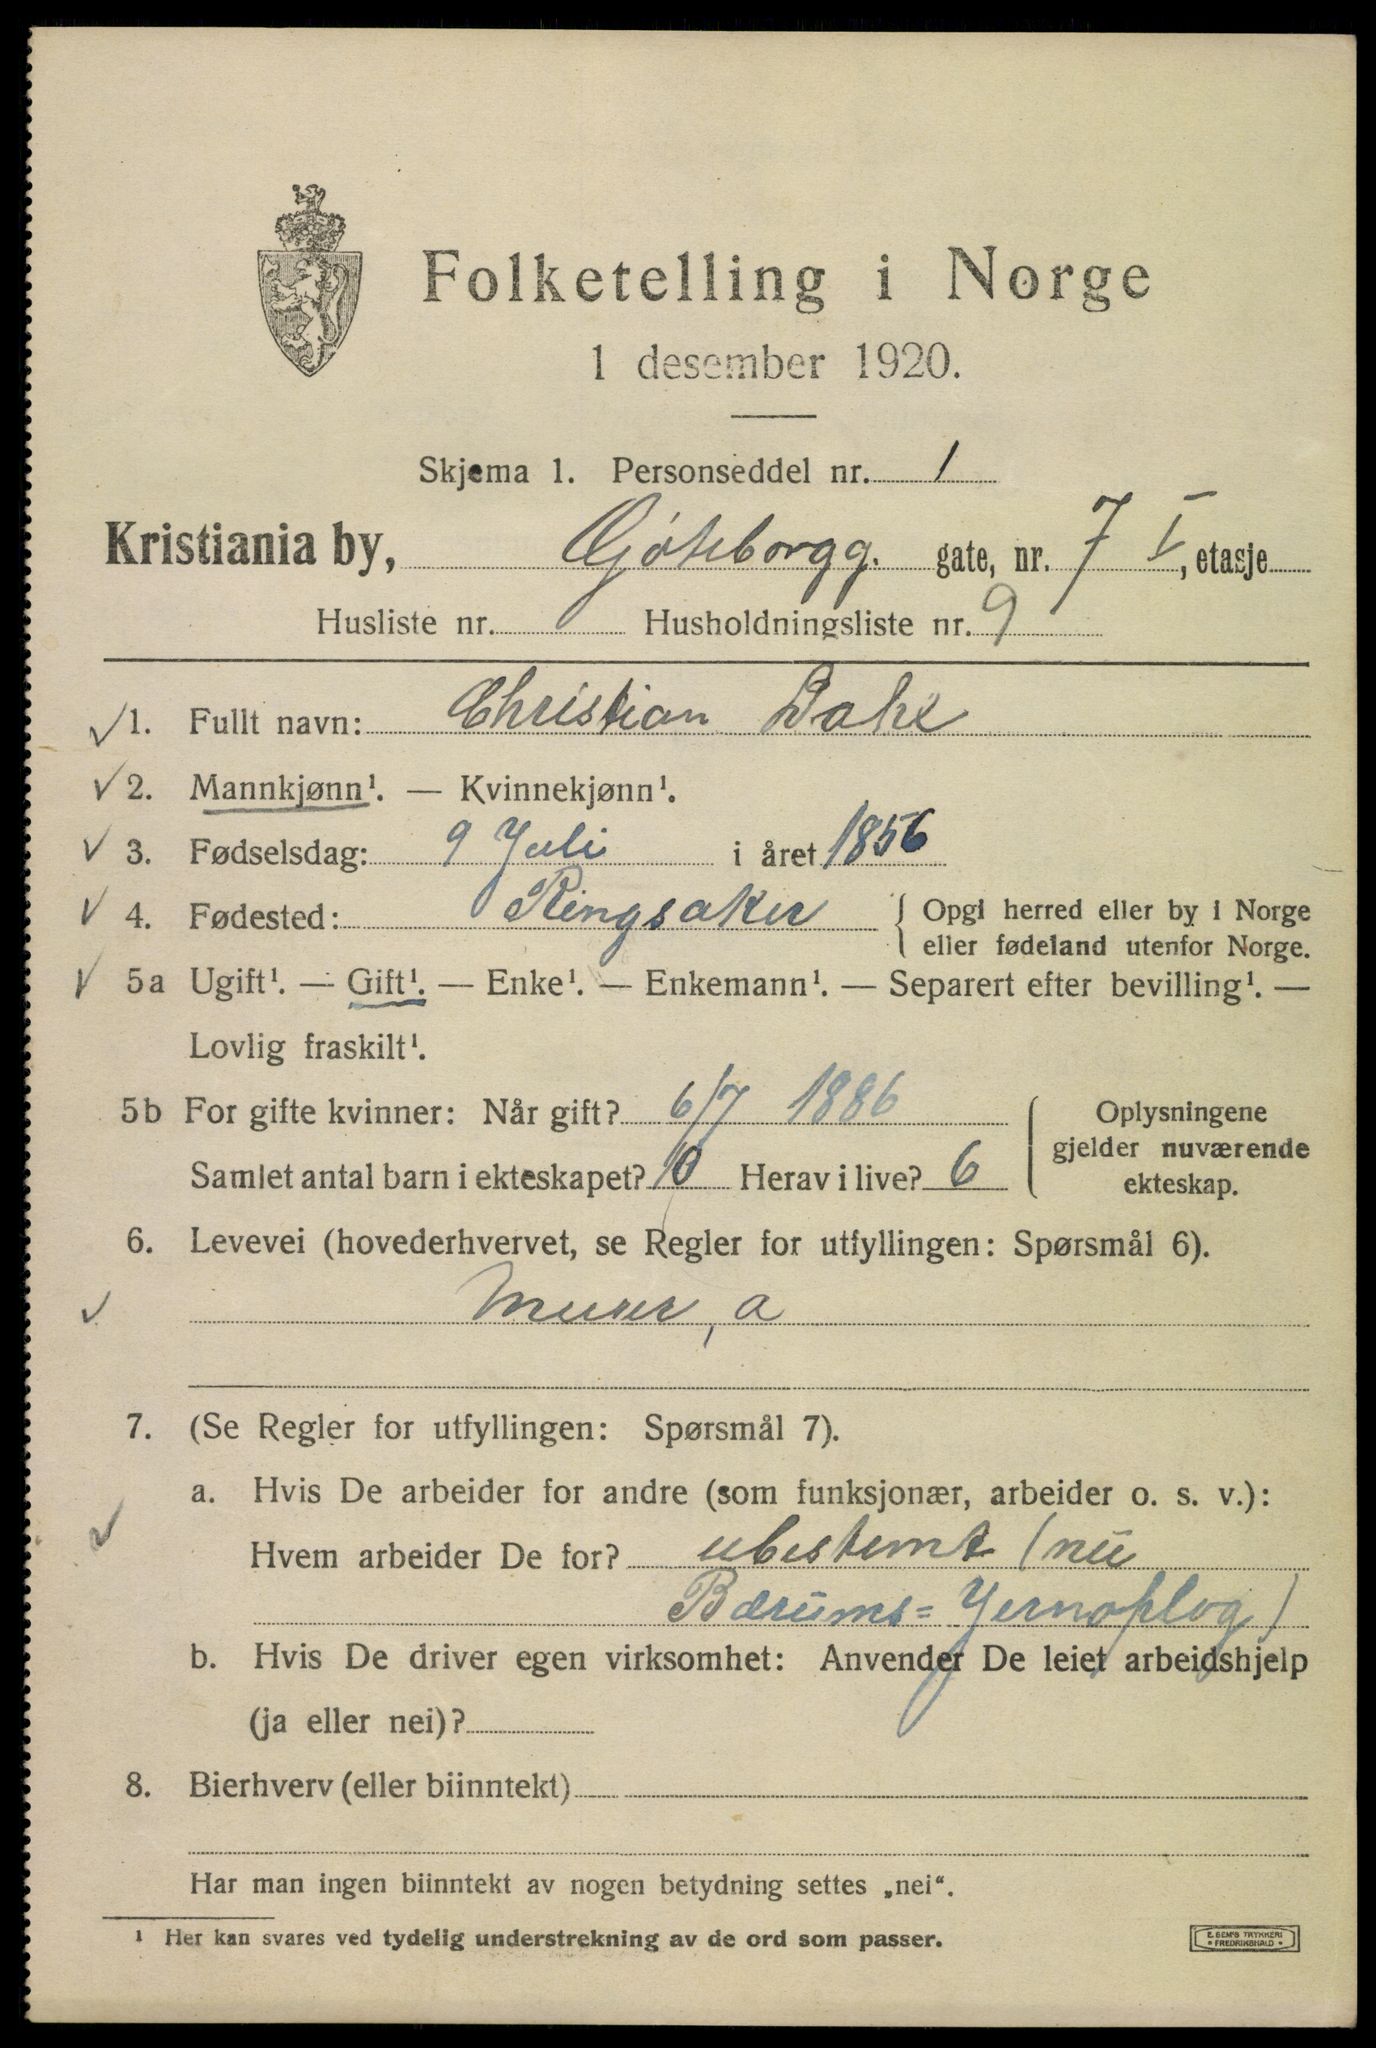 Folketelling i Norge
1 desember 1920.
Skjema 1. Personseddel nr. 1
Kristiania by, Göteborgg. gate, nr. 7 I, etasje
Husliste nr. Husholdningsliste nr. 9
1. Fullt navn: Christian Dahl
2. Mannkjønn¹. — Kvinnekjønn¹.
3. Fødselsdag: 9 Juli i året 1856
4. Fødested: Ringsaker { Opgi herred eller by i Norge
eller fødeland utenfor Norge.
5a Ugift¹. — Gift¹. — Enke¹. — Enkemann¹. — Separert efter bevilling¹. —
Lovlig fraskilt¹.
5b For gifte kvinner: Når gift? 6/7 1886
Samlet antal barn i ekteskapet? 10 Herav i live? 6
Oplysningene
gjelder nuværende
ekteskap.
6. Levevei (hovederhvervet, se Regler for utfyllingen: Spørsmål 6).
Murer, a
7. (Se Regler for utfyllingen: Spørsmål 7).
a. Hvis De arbeider for andre (som funksjonær, arbeider o. s. v.):
Hvem arbeider De for? ubestemt (nu
Bærums=
b. Hvis De driver egen virksomhet: Anvender De leiet arbeidshjelp
(ja eller nei)?
8. Bierhverv (eller biinntekt)
Har man ingen biinntekt av nogen betydning settes „nei“.
¹ Her kan svares ved tydelig understrekning av de ord som passer.
E. SEM'S TRYKKERI
• FREDRIKSHALD •